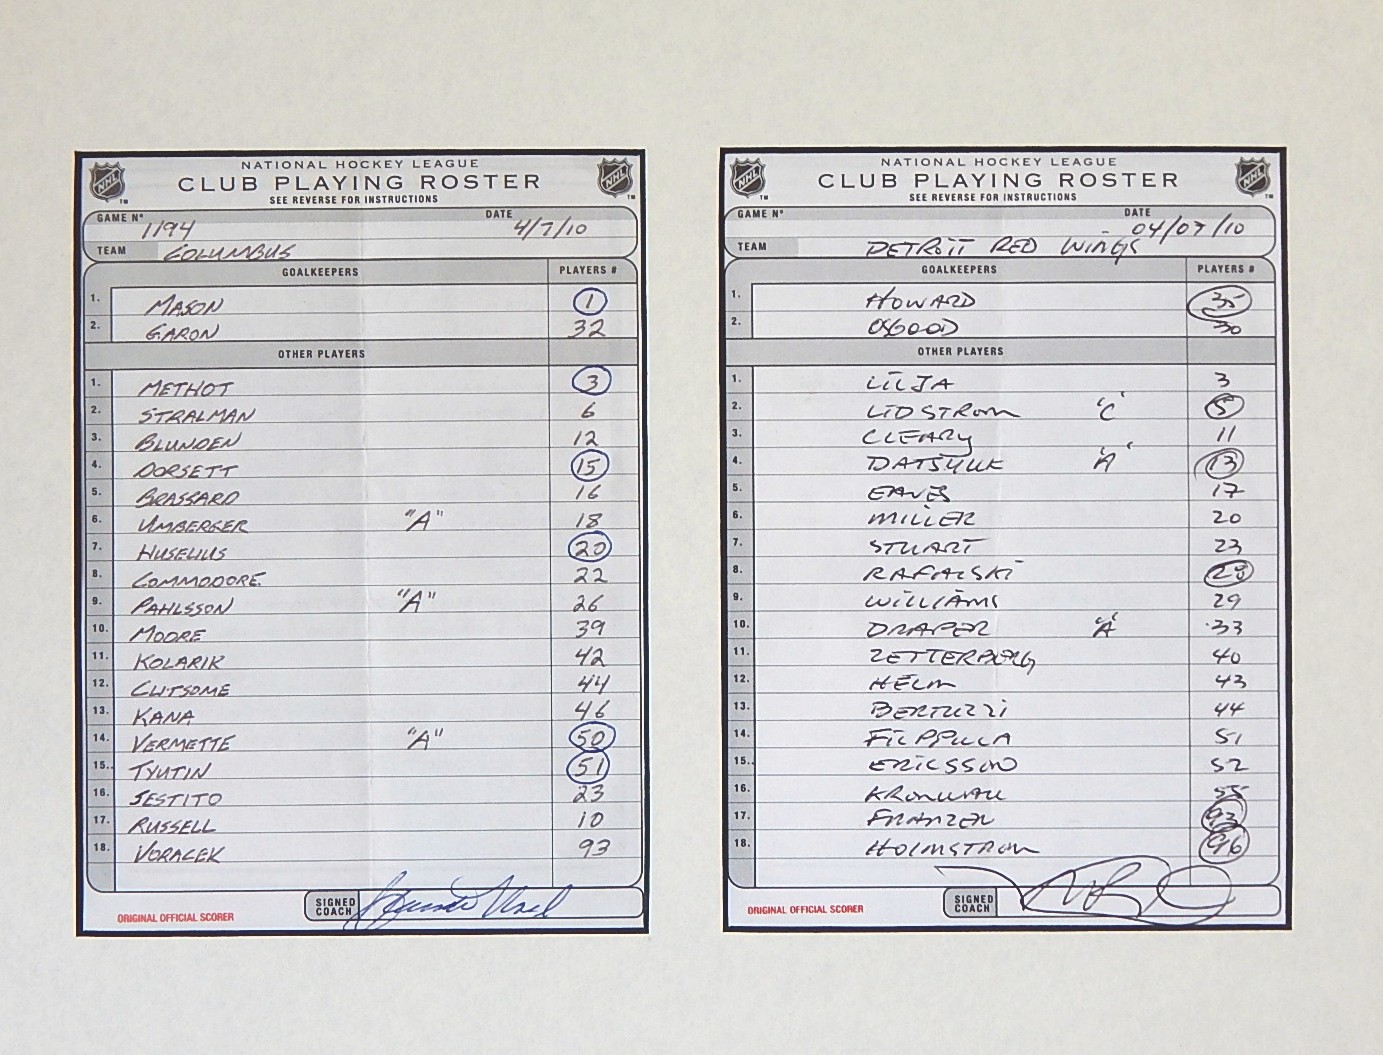 NHL NATIONAL HOCKEY LEAGUE NHL
CLUB PLAYING ROSTER
SEE REVERSE FOR INSTRUCTIONS
GAME Nº 1194 DATE 4/7/10
TEAM COLUMBUS
GOALKEEPERS PLAYERS #
1. MASON 1
2. GARON 32
OTHER PLAYERS
1. METHOT 3
2. STRALMAN 6
3. BLUNDEN 12
4. DORSETT 15
5. BRASSARD 16
6. UMBERGER "A" 18
7. HUSELIUS 20
8. COMMODORE 22
9. PAHLSSON "A" 26
10. MOORE 39
11. KOLARIK 42
12. CLITSOME 44
13. KANA 46
14. VERMETTE "A" 50
15. TYUTIN 51
16. SESTITO 23
17. RUSSELL 10
18. VORACEK 93
ORIGINAL OFFICIAL SCORER
SIGNED COACH
NHL NATIONAL HOCKEY LEAGUE NHL
CLUB PLAYING ROSTER
SEE REVERSE FOR INSTRUCTIONS
GAME Nº DATE 04/07/10
TEAM DETROIT RED WINGS
GOALKEEPERS PLAYERS #
1. HOWARD 35
2. OSGOOD 30
OTHER PLAYERS
1. LILJA 3
2. LIDSTROM 'C' 5
3. CLEARY 11
4. DATSYUK 'A' 13
5. EAVES 17
6. MILLER 20
7. STUART 23
8. RAFALSKI 28
9. WILLIAMS 29
10. DRAPER 'A' 33
11. ZETTERBERG 40
12. HELM 43
13. BERTUZZI 44
14. FILPPULA 51
15. ERICSSON 52
16. KRONWALL 55
17. FRANZEN 93
18. HOLMSTROM 96
ORIGINAL OFFICIAL SCORER
SIGNED COACH